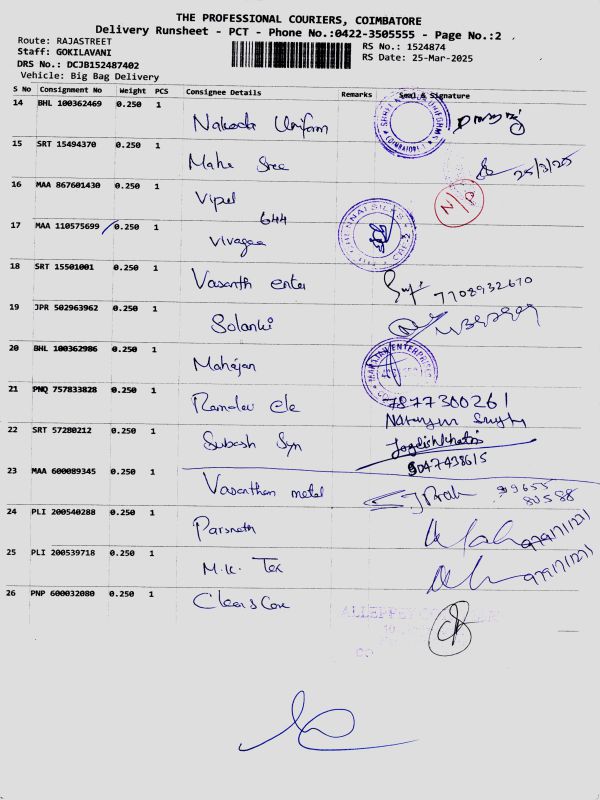 THE PROFESSIONAL COURIERS, COIMBATORE
Delivery Runsheet - PCT - Phone No.:0422-3505555 - Page No.:2
Route: RAJASTREET
Staff: GOKILAVANI
DRS No.: DCJB152487402
Vehicle: Big Bag Delivery
RS No.: 1524874
RS Date: 25-Mar-2025
S No Consignment No Weight PCS Consignee Details Remarks Seal & Signature
14 BHL 100362469 0.250 1 Nakoda Uniform
15 SRT 15494370 0.250 1 Mahe Sree 25/3/25
16 MAA 867601430 0.250 1 Vipul N/P
644
17 MAA 110575699 0.250 1 Vivagaa
18 SRT 15501001 0.250 1 Vasanth enter 7708932670
19 JPR 502963962 0.250 1 Solanki
20 BHL 100362986 0.250 1 Mahajan
MAHAJAN ENTERPRISES
21 PNQ 757833828 0.250 1 Ramdev ele 7877300261
22 SRT 57280212 0.250 1 Subash Syn
9047438615
23 MAA 600089345 0.250 1 Vasantham metal 99655
80588
24 PLI 200540288 0.250 1 Parsnath 9791711271
25 PLI 200539718 0.250 1 M.K. Tex 9791711271
26 PNP 600032080 0.250 1 Clear & Care
ALLEPPEY